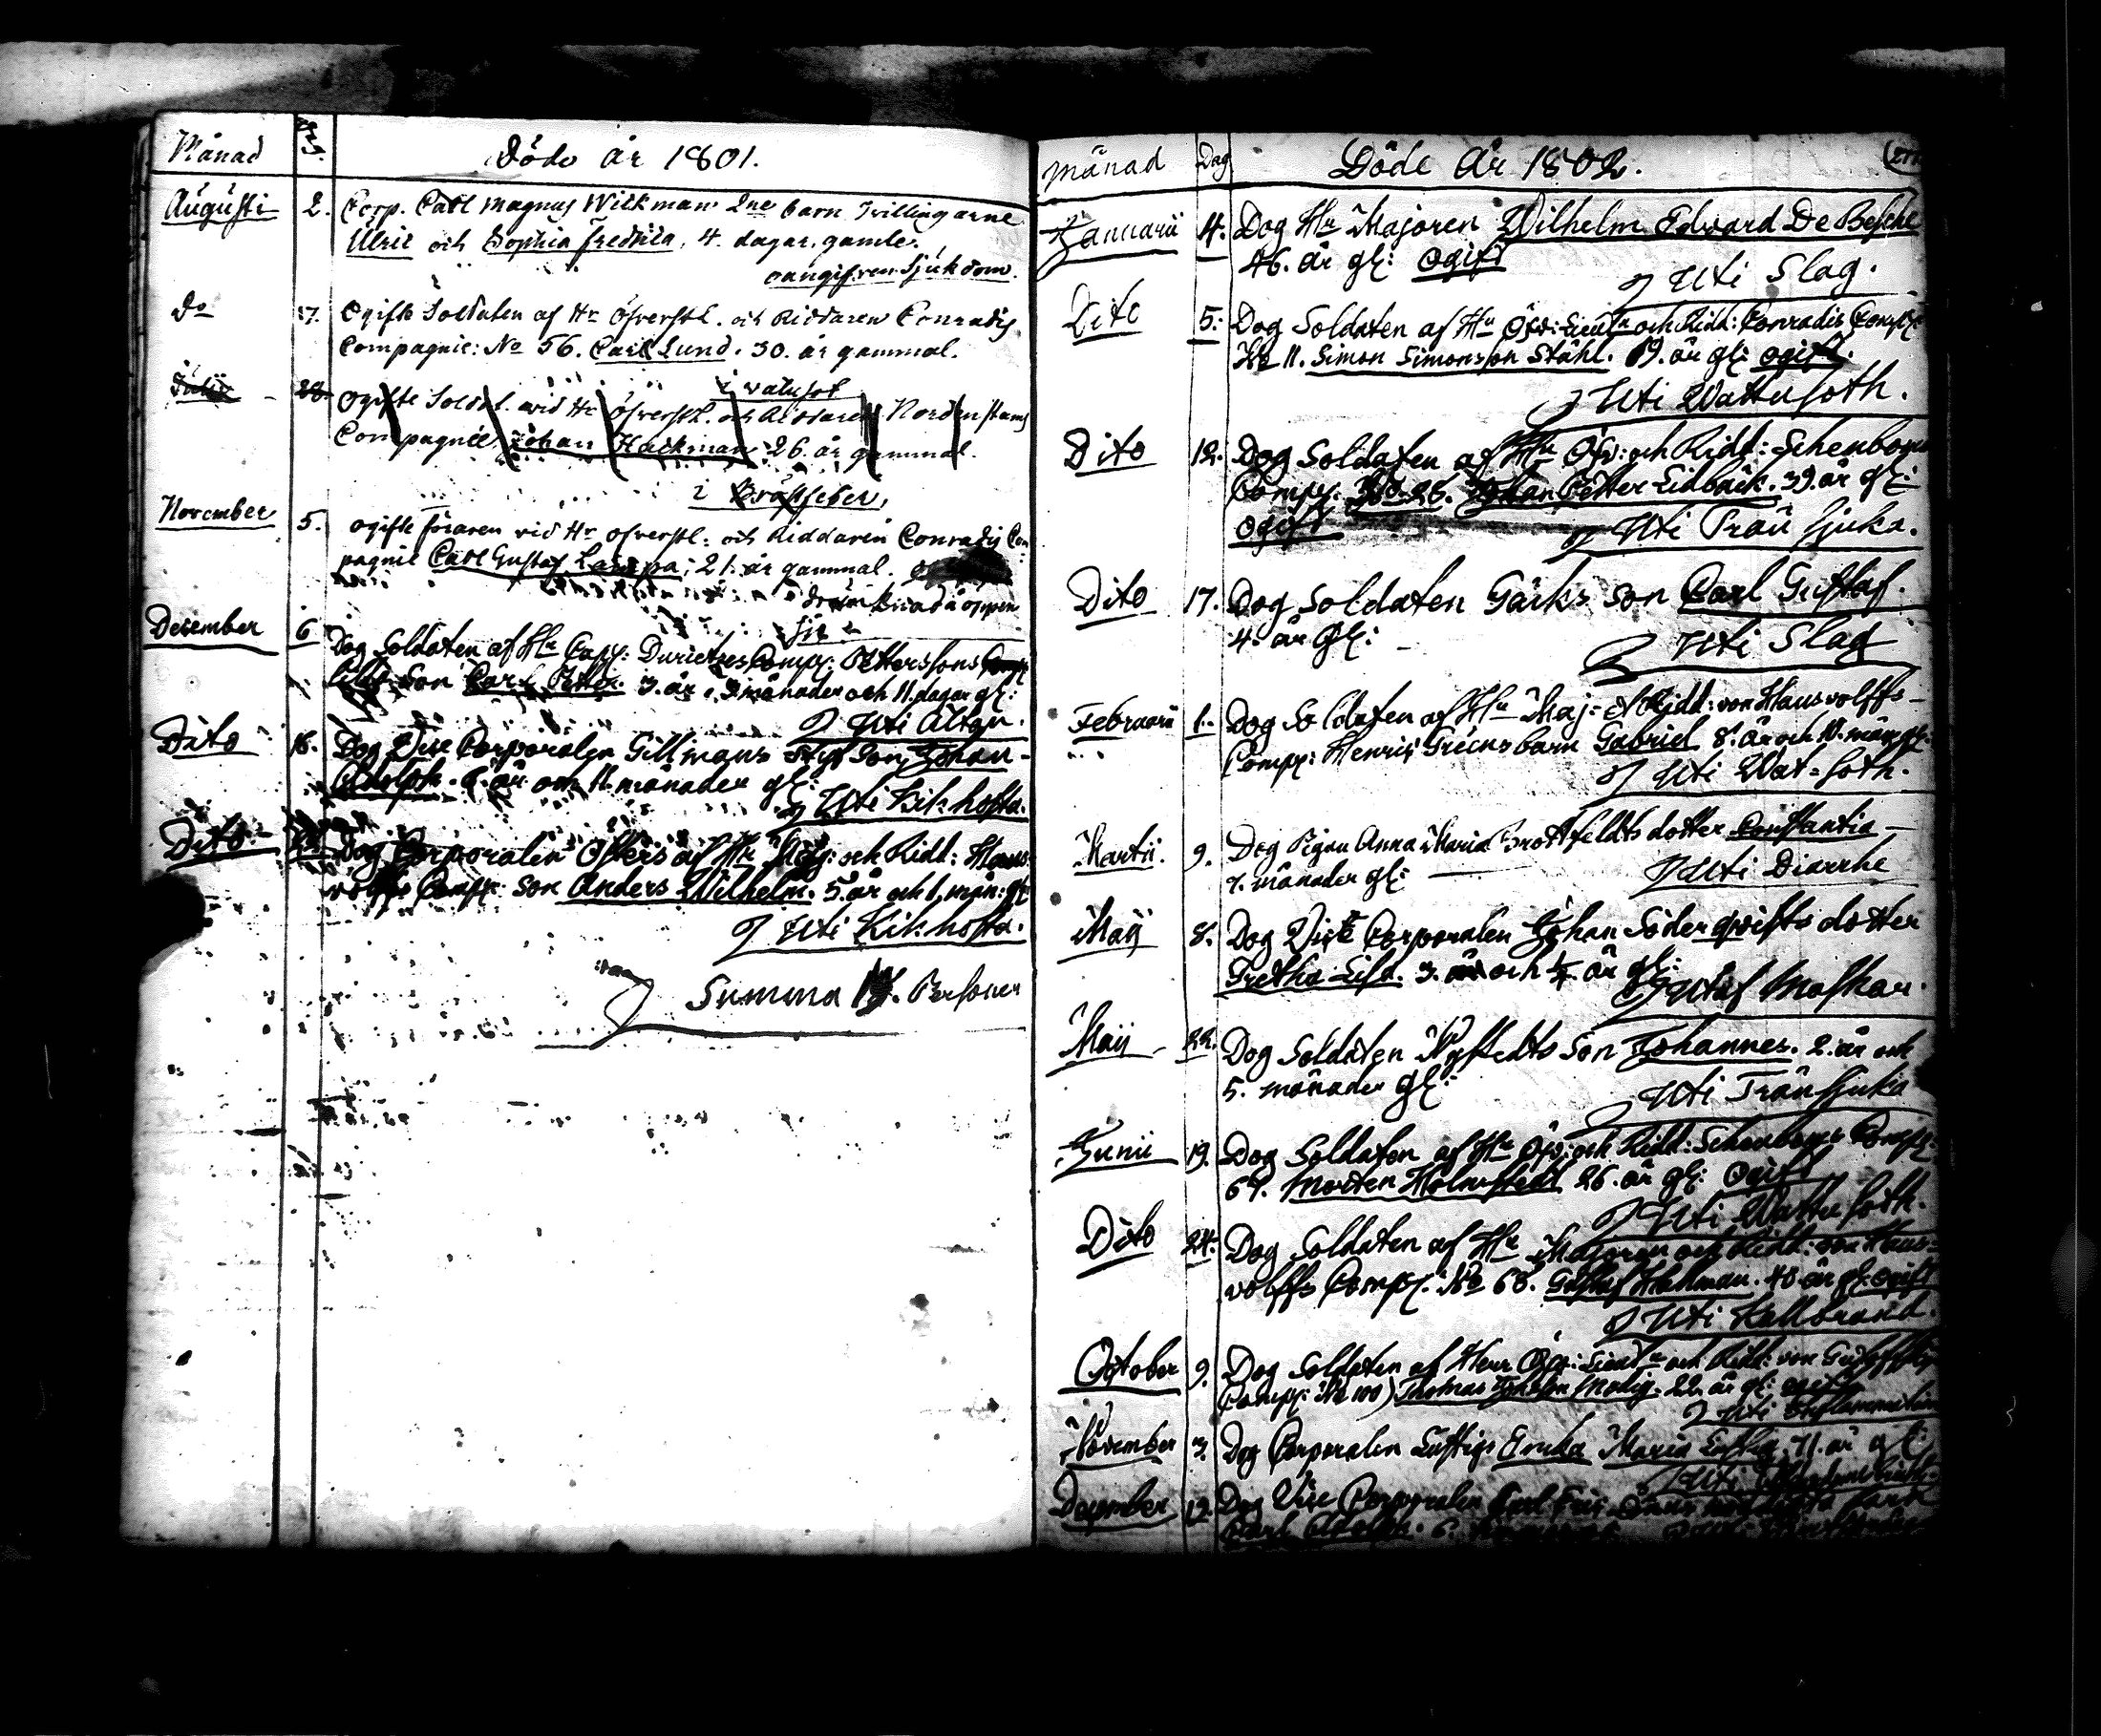 Månad Dag. Döde år 1801.
Augusti 2. Corp. Carl Magnus Wilkman 2ne barn Tvillingarne
Ulric och Sophia Fredrica, 4. dagar gamle.
oangifven Sjukdom.
Do 17. Ogifte Soldaten af Hr Öfverstl. och Riddaren Conradis
Compagnie: No 56. Carl Lund. 30. år gammal.
i vatusot
Julii 28. Ogifte Soldat. vid Hr Öfverstl. och Riddaren Nordenstams
Compagnie, Johan Hackman 26. år gammal.
i Bröstfeber,
November 5. ogifte föraren vid Hr öfverstl: och Riddaren Conradis Com
pagnie Carl Gustaf 21. år gammal.
drunknad i öppen
sjö
December 6 Dog Soldaten af Hr Capp: Durietzes Comp: Petterssons
Son Carl Petter. 3. år, 3 månader och 11. dagar gl:
Uti Altan.
Dito 16. Dog Vice Corporalen Gillmans Styf Son Johan
Adolph. 6. år och 11. månader gl:
Uti Kikhosta.
Dito Dog Corporalen af Hr Maj: och Ridd: Haus-
volffs Comp: Son Anders Wilhelm. 5. år och 1, mån: gl:
Uti Kikhosta.
Summa Personer
Månad Dag Döde År 1802.
Januarii 4. Dog Hr Majoren Wilhelm Edvard De Besche
46. år gl: ogift
Uti Slag.
Dito 5. Dog Soldaten af Hr Öfv: Lieutn och Ridd: Conradis Comp:
No 11. Simon Simonsson Ståhl. 19. år gl: ogift.
Uti Wattusoth.
Dito 12. Dog Soldaten af Hr Öfv: och Ridd: Schenboms
Comp: No 26. Johan Petter Lidbäck. 39. år gl:
Ogift
Uti Trånsjuka.
Dito 17. Dog Soldaten Gärks Son Carl Gustaf.
4. år gl:
Uti Slag
Februarii 1. Dog Soldaten af Hr Maj: o Ridd: von Hausvolffs
Comp: Henric Greens barn Gabriel 8. år och 10. mån gl:
Uti Wat-soth.
Martii. 9. Dog Pigan Anna Maria Brottfeldts dotter Constantia
7. månader gl:
Uti Diarrhe
Maij 8. Dog Vice Corporalen Johan Söderqvists dotter
Gretha Lisa. 3. och ½ år gl:
Utaf Maskar.
Maij 22. Dog Soldaten Nystedts Son Johannes. 2. år och
5. månader gl:
Uti Trånsjuka
Junii 19. Dog Soldaten af Hr Öfv: och Ridd: Schenboms Comp:
69. Morten Holmstedt 26. år gl: Ogift
Uti Wattusoth.
Dito 24. Dog Soldaten af Hr Majoren och Ridd: von Haus-
volffs Comp: No 68. Gustaf Hallman. 40 år gl: ogift
Uti Kallbrand.
October 9. Dog Soldaten af Herr Öfv: Lieutn och Ridd: von
Comp: No 100) Thomas Modig. 22. år gl: ogift
Uti Inflammation
November 3. Dog Corporalen Lustigs Enka Maria Lustig. 71. år gl:
Uti
December 12. Dog Vice Corporalen Carl
Carl Adolph. 6.